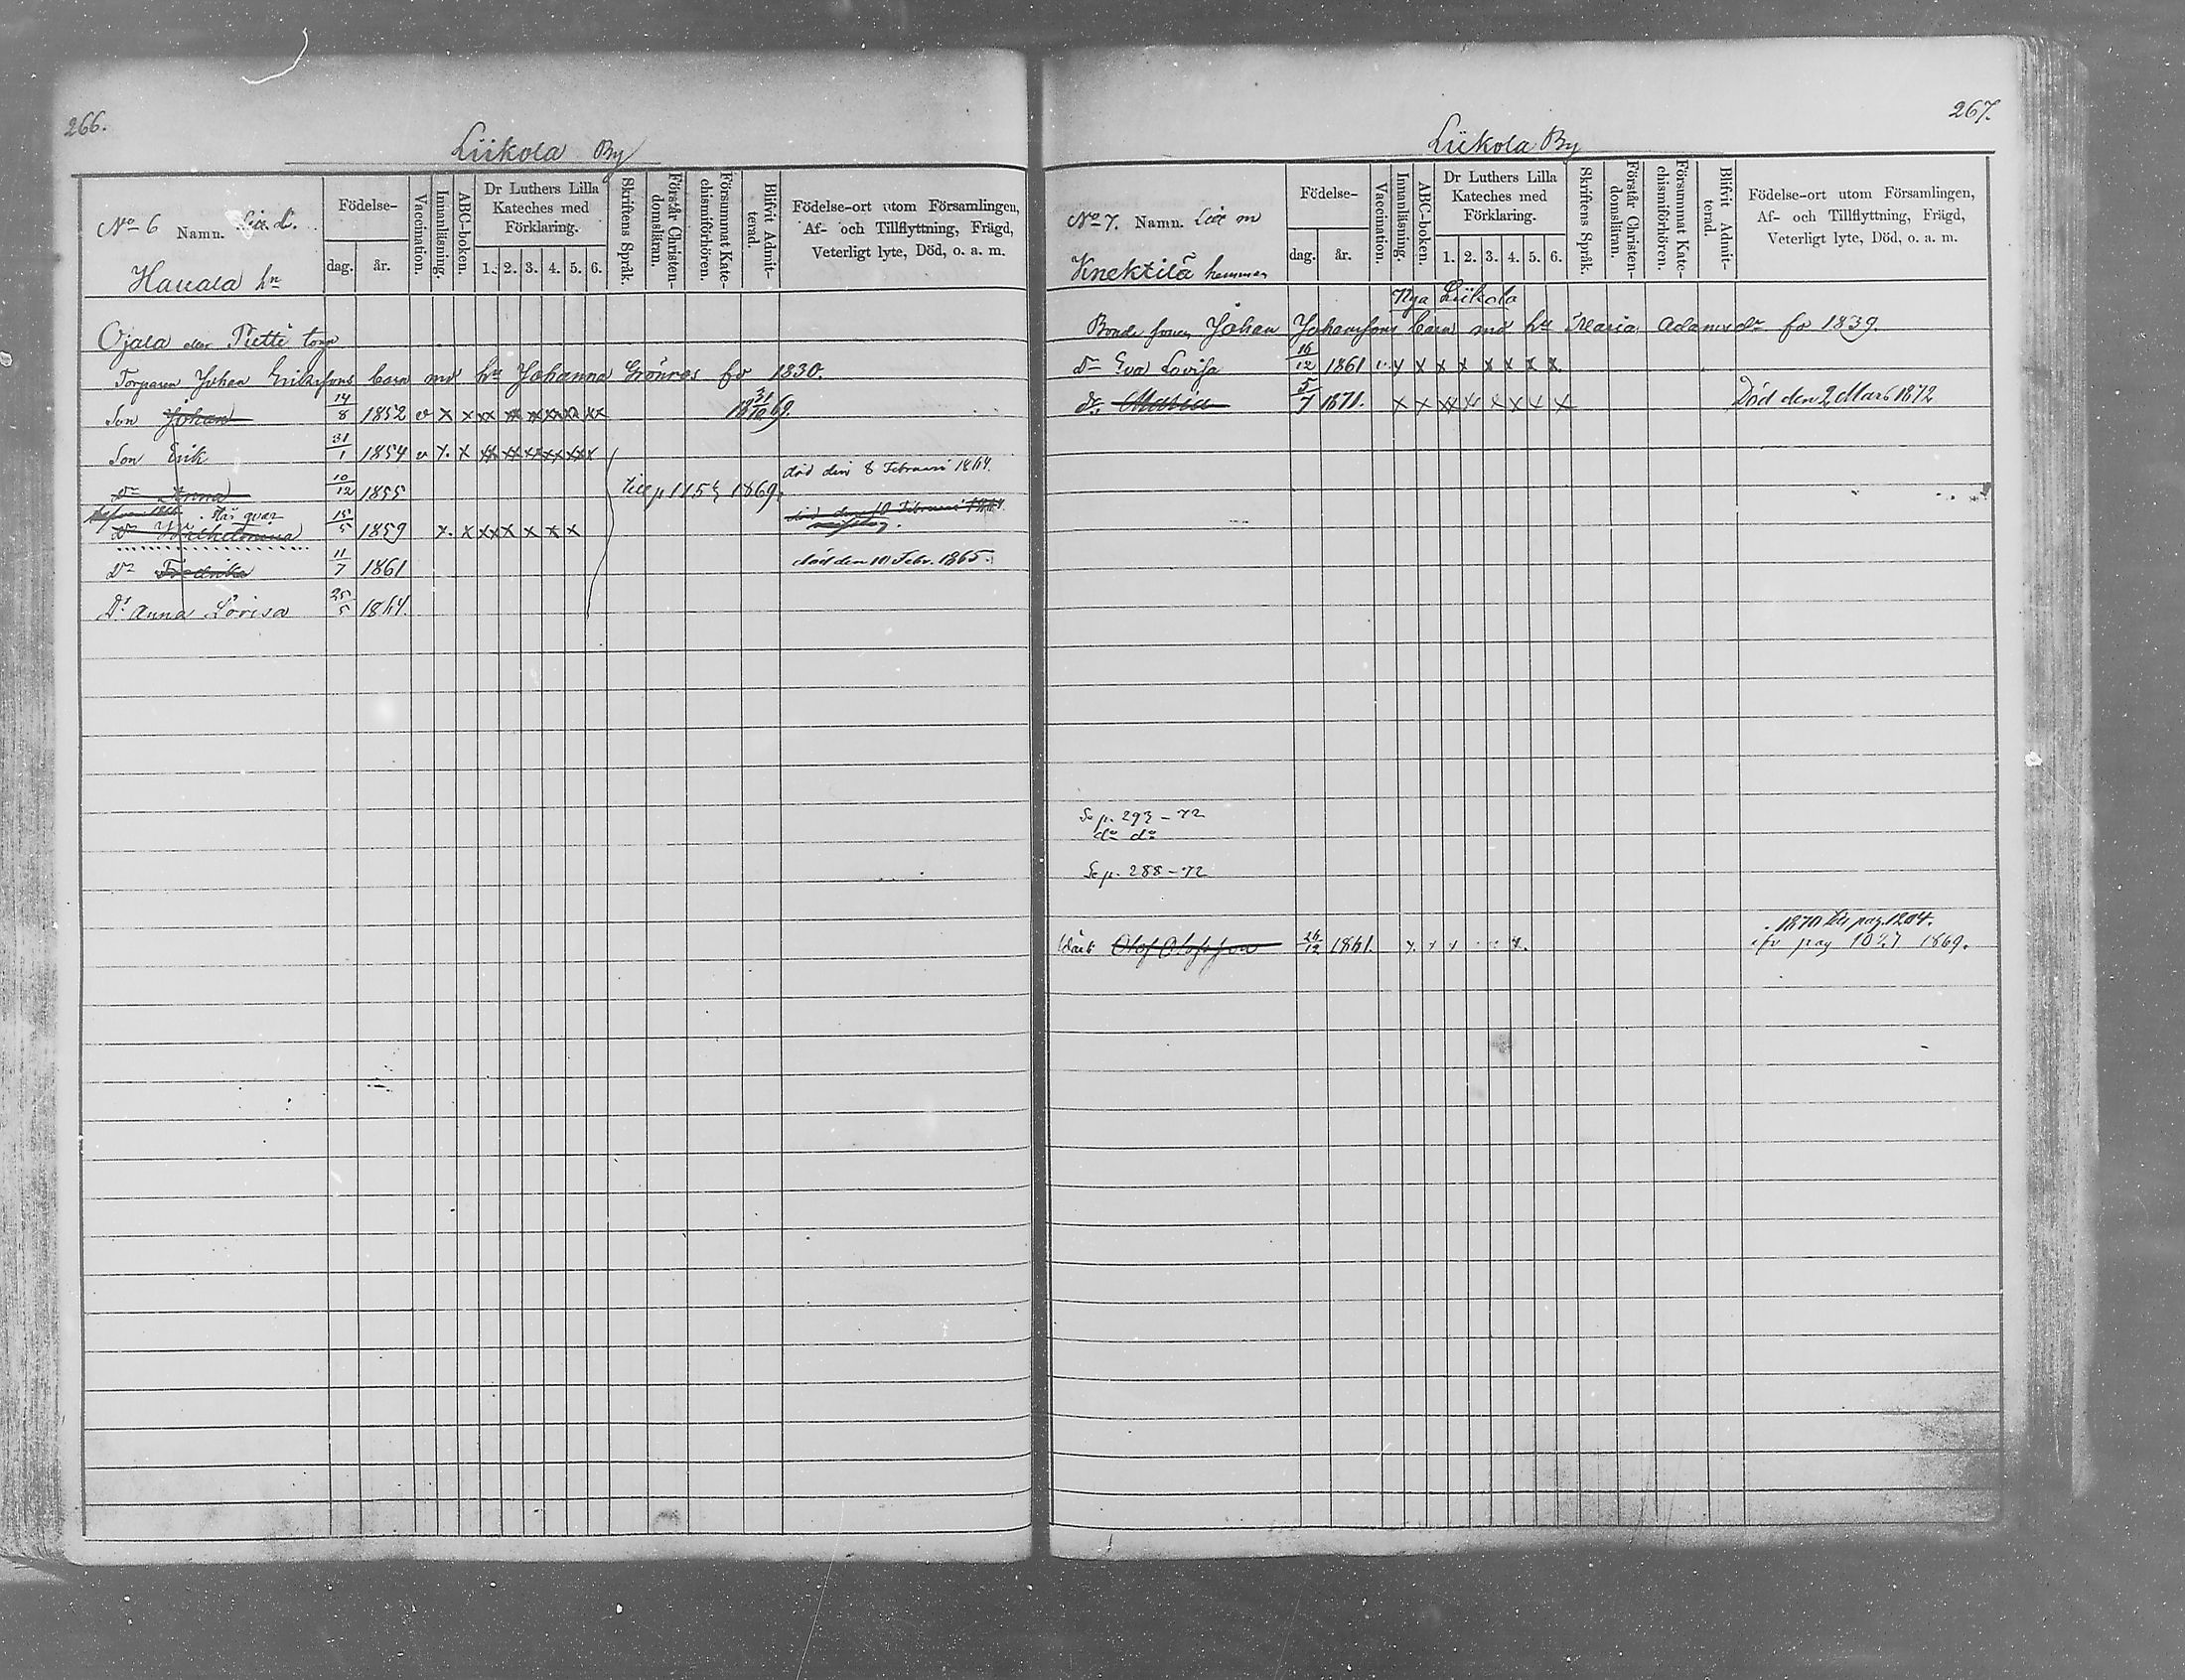 266.
Liikola By
No 6 Namn. Litt. L.
Hauala hn
Födelse-
dag. år.
Vaccination.
Innanläsning.
ABC-boken.
Dr Luthers Lilla
Kateches med
Förklaring.
1. 2. 3. 4. 5. 6.
Skriftens Språk.
Förstår Christen-
domsläran.
Försummat Kate-
chismiförhören.
Blifvit Admit-
terad.
Födelse-ort utom Församlingen,
Af- och Tillflyttning, Frägd,
Veterligt lyte, Död, o. a. m.
Ojala eller Pietti torp
Torparen Johan Erikssons barn md hu Johanna Grönroos fö 1830.
Son Johan 14/8 1852 v x x xx xx xx xx xx xx 31/10 69.
Son Erik 31/1 1854 v x. x xx xx xx xx xx xx
Dr Anna 10/12 1855 till p 1154 1869. död den 8 Februari 1864.
Här qvar
Dr Wilhelmina 15/5 1859 x. x xx x x x x död den 10 Februari 1864
Dr Fredrika 11/7 1861 död den 10 Febr. 1865.
Dr Anna Lovisa 25/5 1864.
267.
Liikola By
No 7. Namn. Litt m
Knektilä hemman
Födelse-
dag. år.
Vaccination.
Innanläsning.
ABC-boken.
Dr Luthers Lilla
Kateches med
Förklaring.
1. 2. 3. 4. 5. 6.
Skriftens Språk.
Förstår Christen-
domsläran.
Försummat Kate-
chismiförhören.
Blifvit Admit-
terad.
Födelse-ort utom Församlingen,
Af- och Tillflyttning, Frägd,
Veterligt lyte, Död, o. a. m.
Nya Liikola
Bonde sonen Johan Johanssons barn md hu Maria Adamsdr fö 1839.
Dr Eva Lovisa 16/12 1861 v. x x x x x x x x.
Dr 5/7 1871. x x xx x x x x x Död den 2 Mars 1872
Se p. 293 - 72
do do
Se p. 288 - 72
1870 till pag. 1204.
Olof Olofsson 26/12 1861. x. x x x. fr pag 1027 1869.